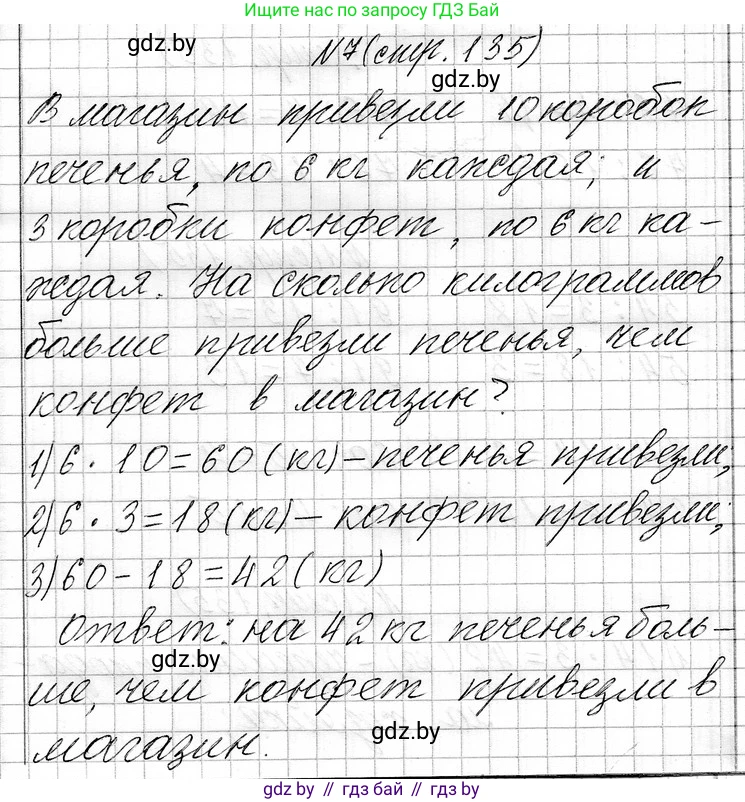 Ищите нас по запросу ГДЗ Бай
gdz.by
N7(стр. 135)
gdz.by
В магазин привезли 10 коробок
печенья, по 6 кг каждая; и
3 коробки конфет, по 6 кг ка-
ждая. На сколько килограммов
больше привезли печенья, чем
конфет в магазин?
1) 6 · 10 = 60 (кг) – печенья привезли;
2) 6 · 3 = 18 (кг) – конфет привезли;
3) 60 – 18 = 42 (кг)
Ответ: на 42 кг печенья боль-
gdz.by
ше, чем конфет привезли в
gdz.by
магазин.
gdz.by // гдз бай // гдз by